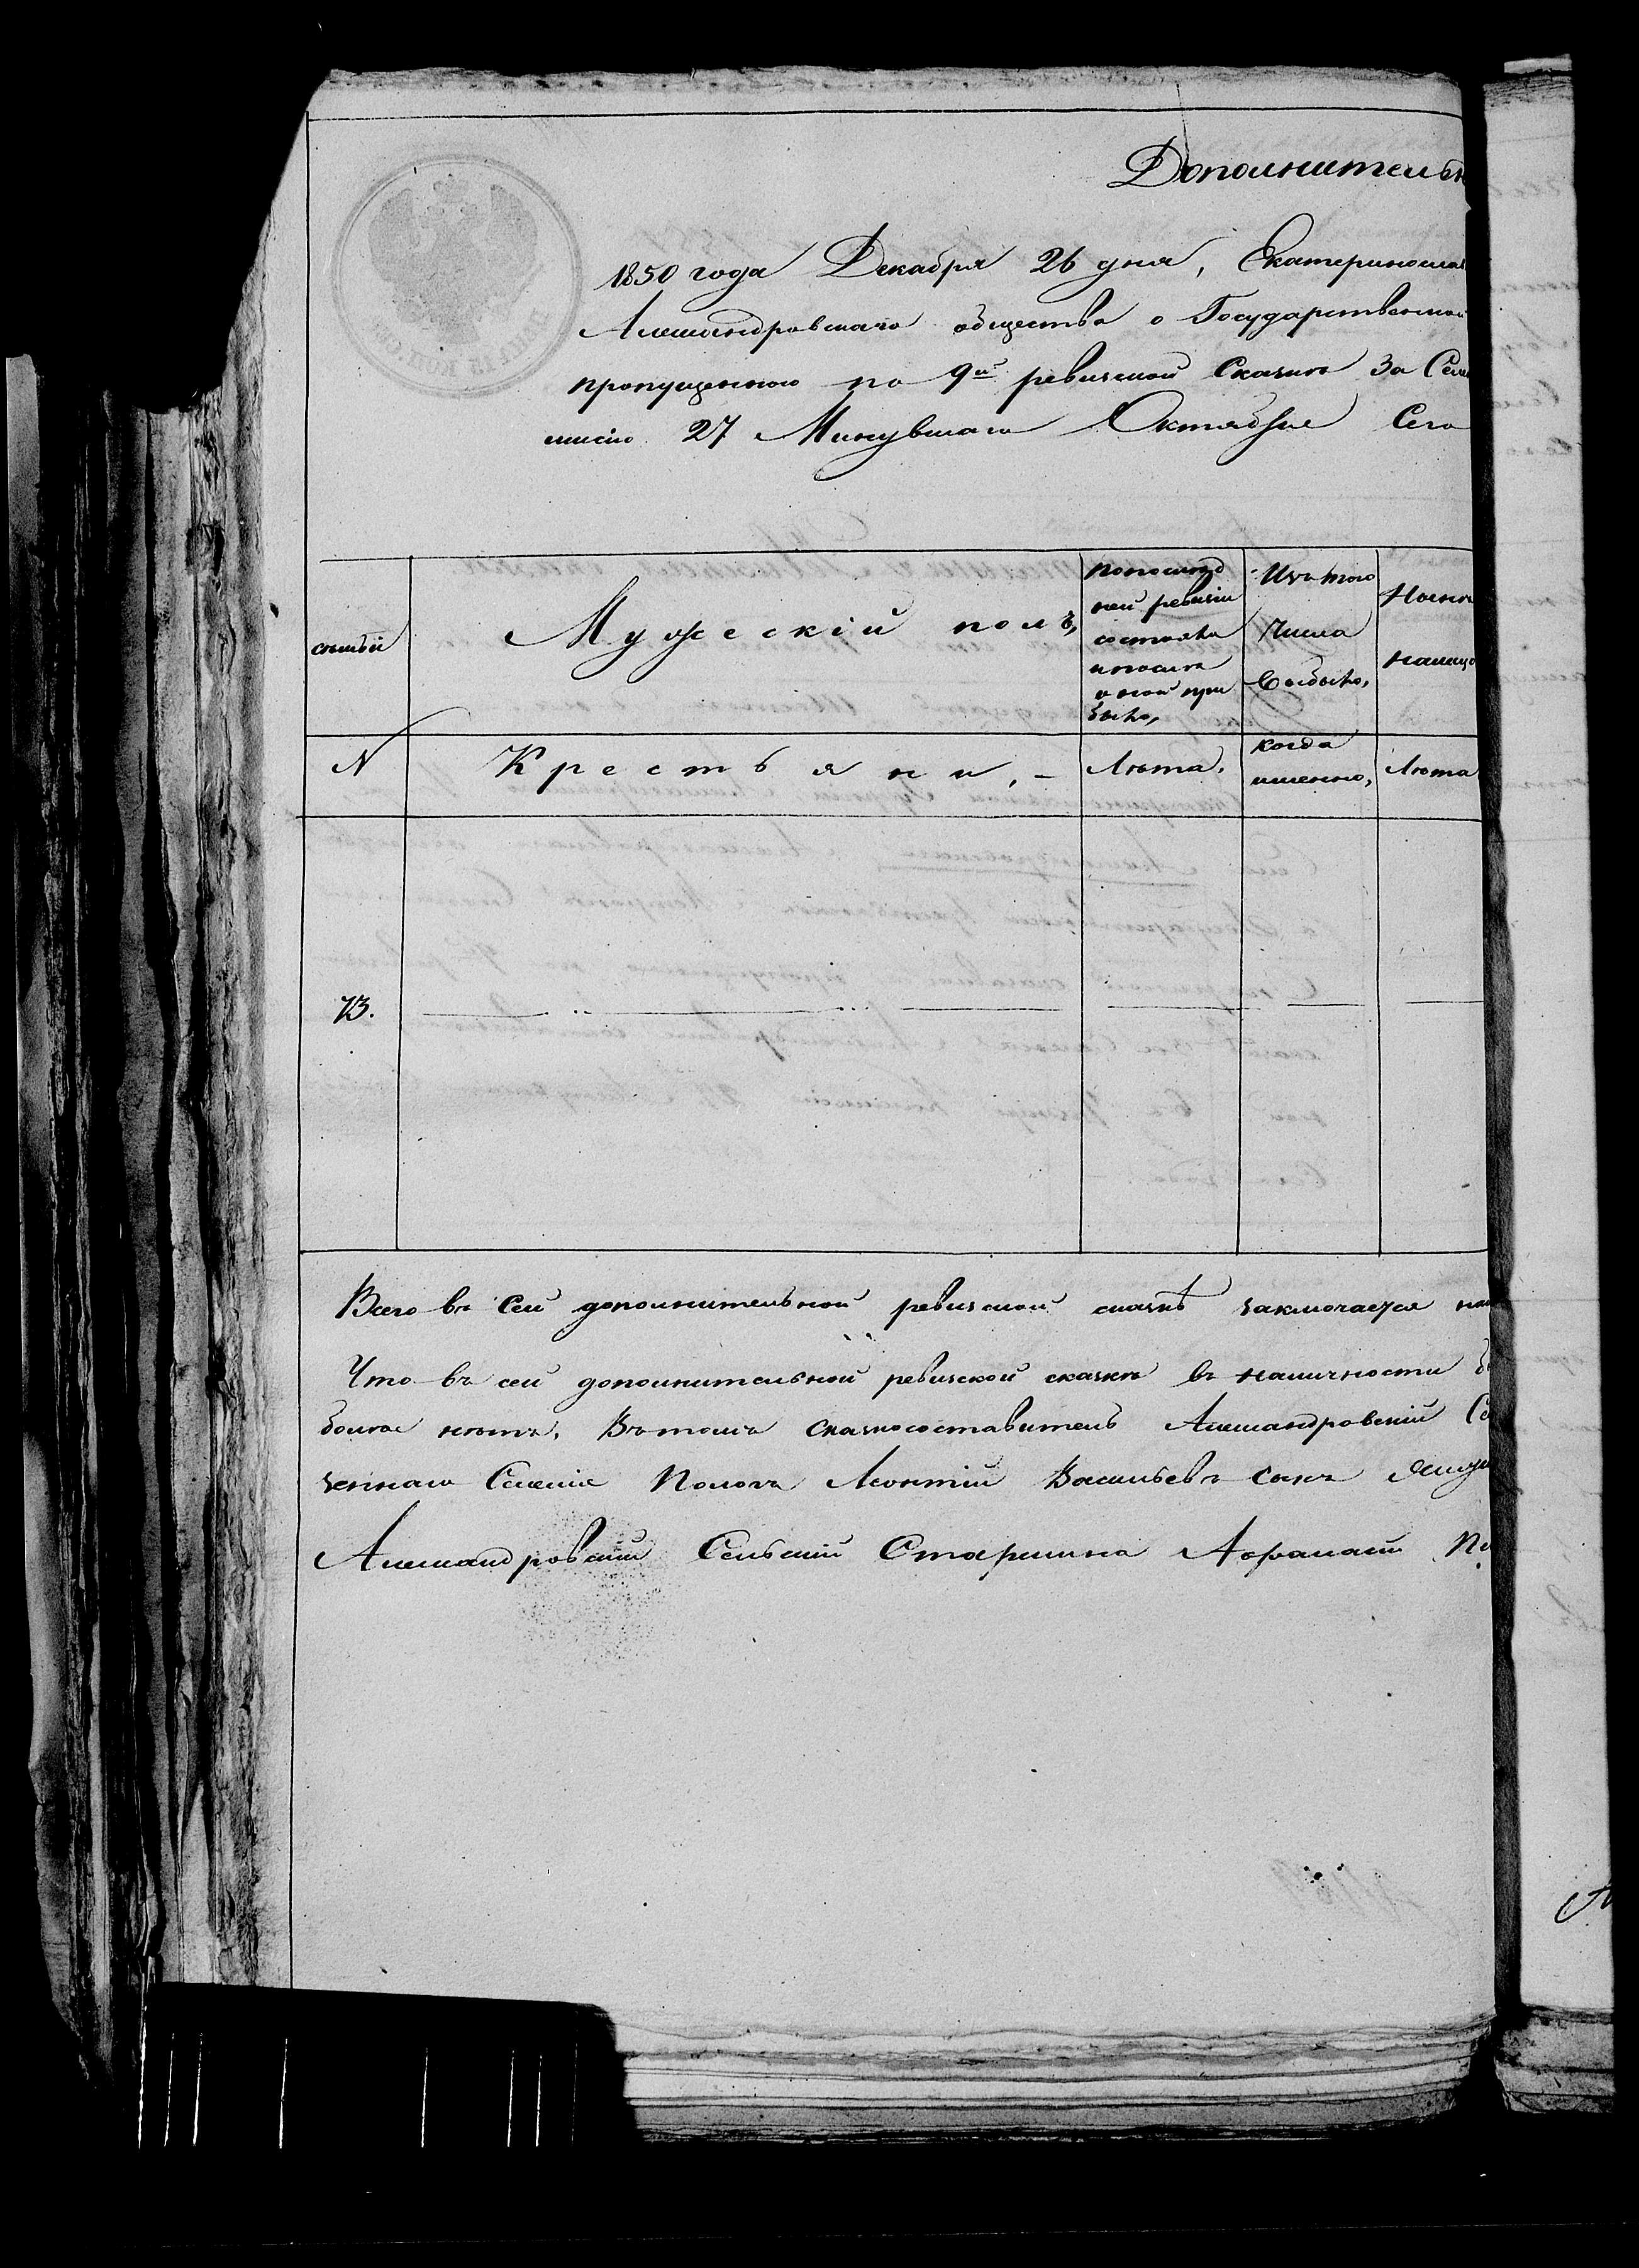 Дополнительн
1850 года Декабря 26 дня, Екатеринослав
Александровскаго общества о Государственной
пропущенною по 9й ревизской Сказки За Сел
мисію 27 Минувшаго Октября Сего
семьи
Мужескій полъ,
по послед
ней ревизіи
состояло
и после
оной при
было,
Изъ того
Числа
Выбыло,
Ныне
налицо
N
Крестьяни,
Лета.
когда
именно,
Лета
73.
Всего въ Сей дополнительной ревизской сказкѣ заключается нал
Что въ сей дополнительной ревизской сказке въ наличности
более нетъ, Въ томъ сказкосоставитель Александровскій Се
Селенія Пологъ Леонтій Васильевъ сынъ
Александровскій Сельскій Старшина Афанасій